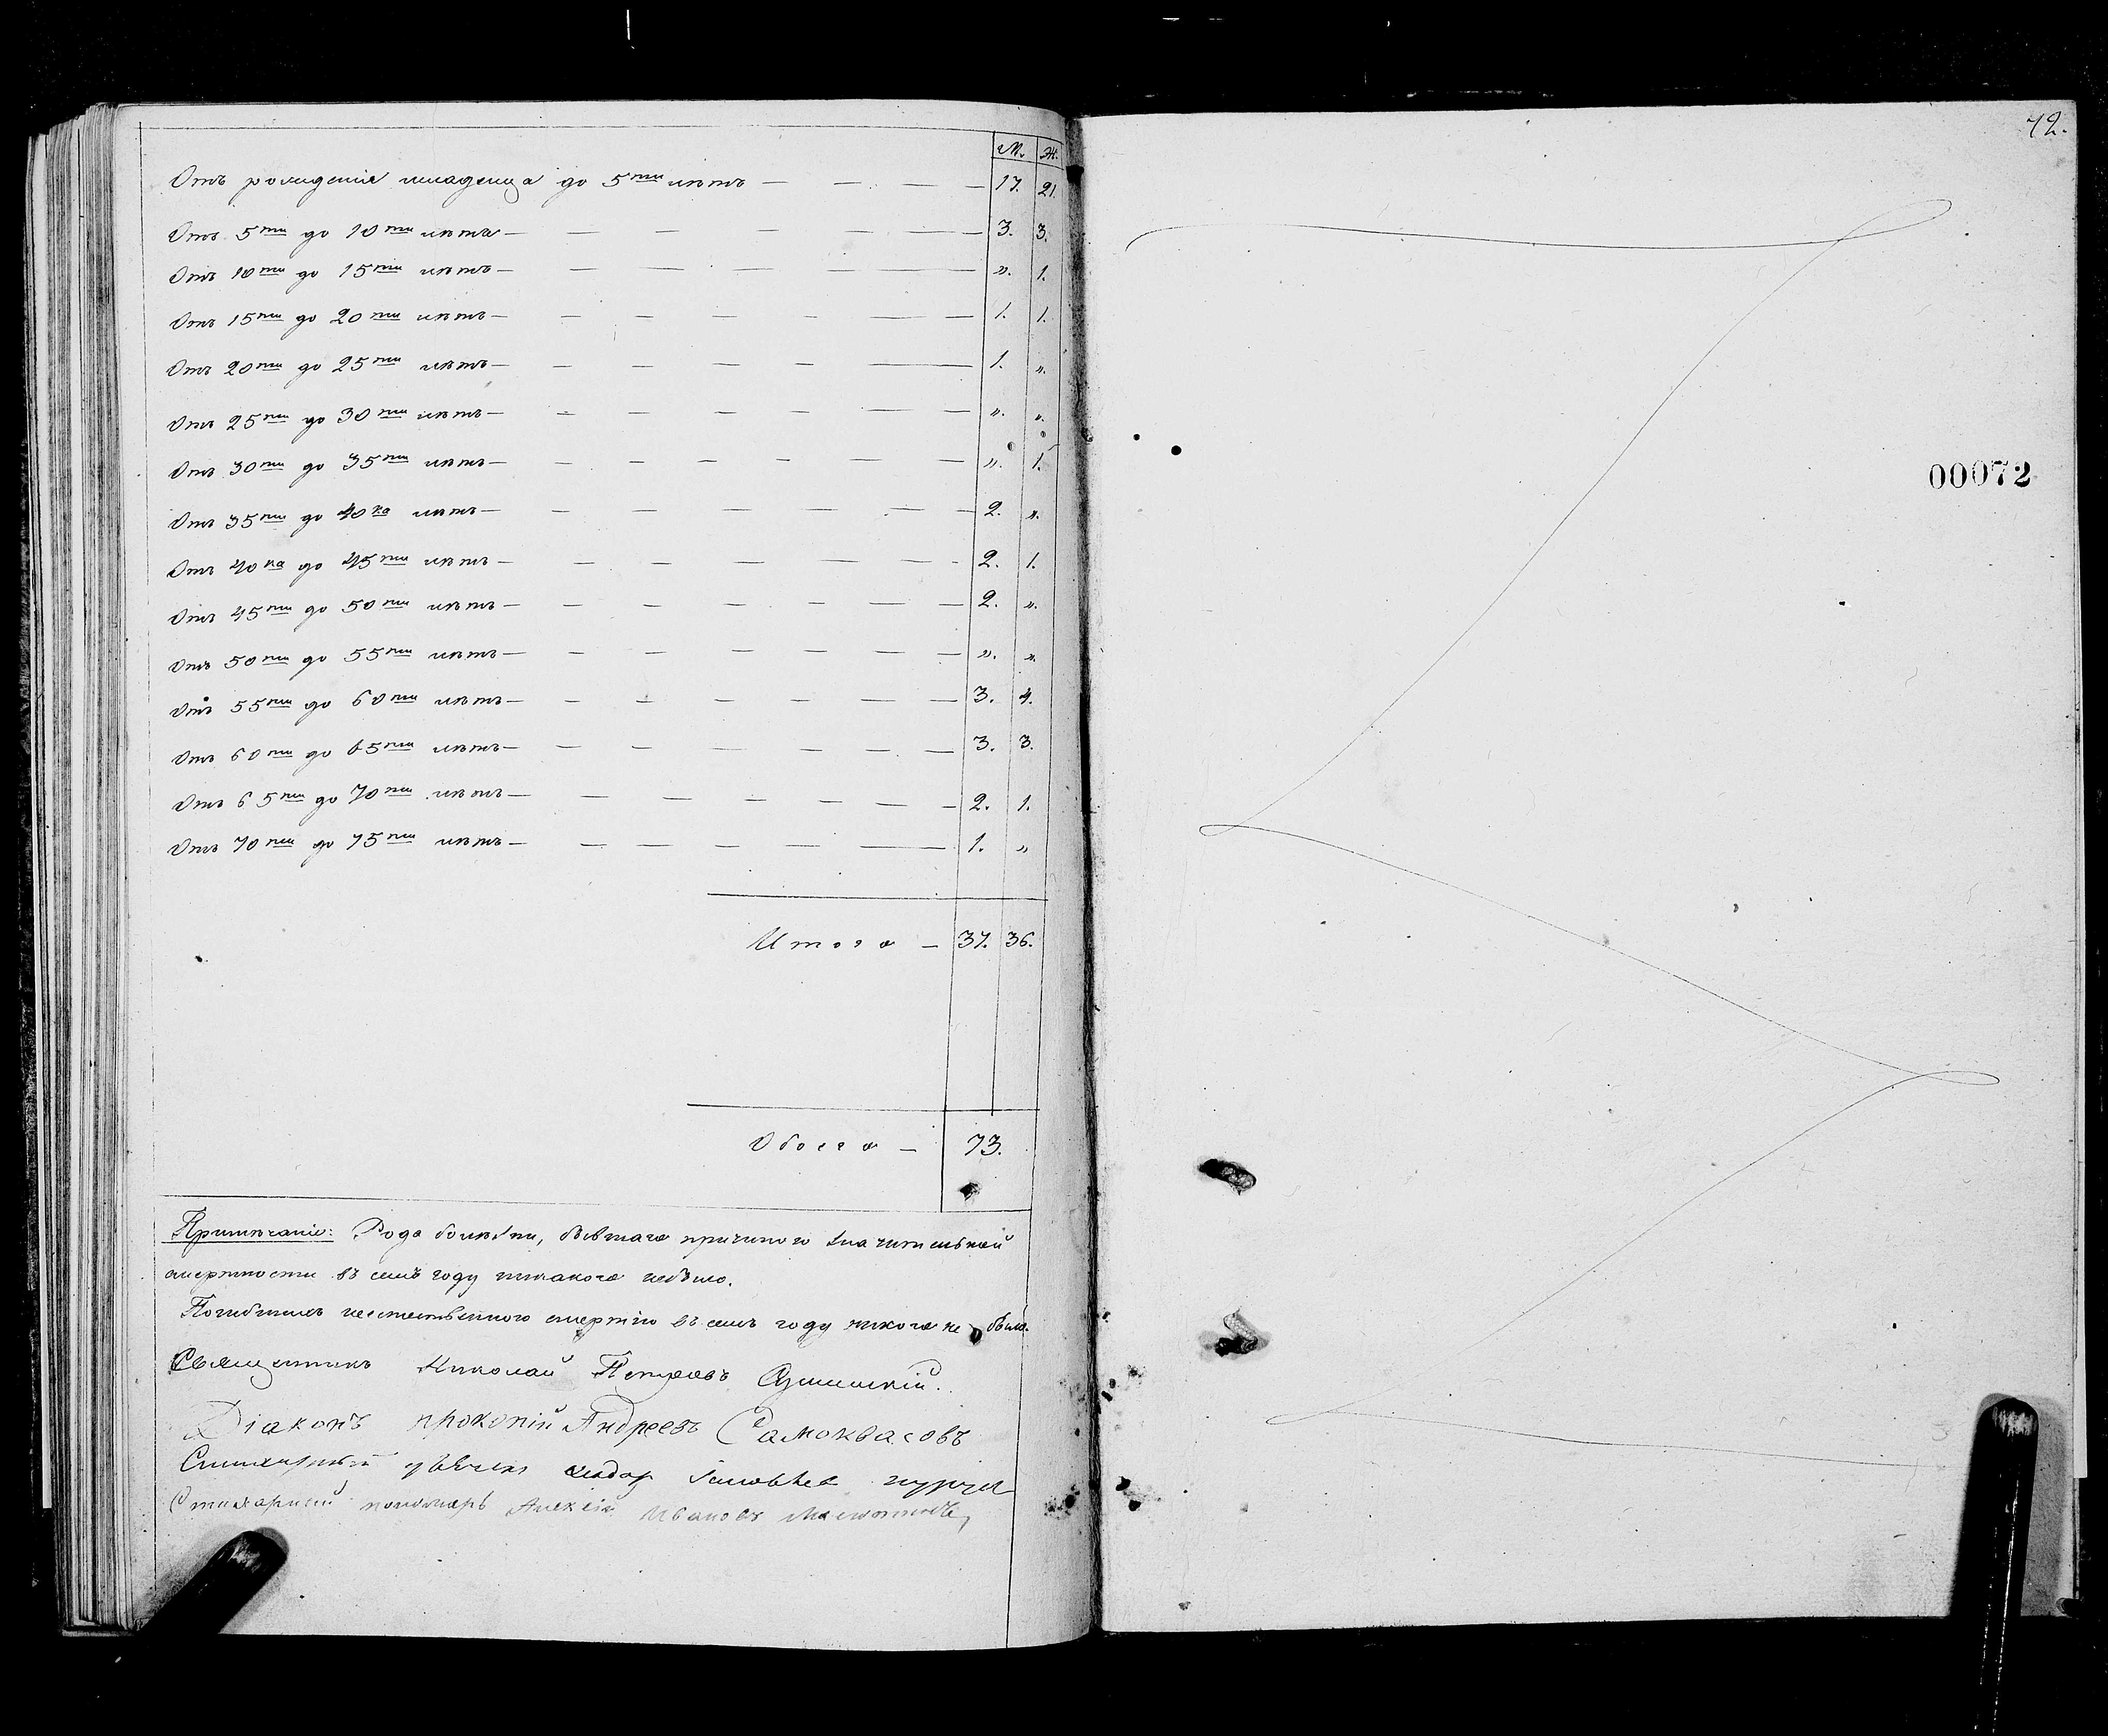 М. Ж.
Отъ рожденія младенца до 5ти лѣтъ — — — — 17. 21.
Отъ 5ти до 10ти лѣтъ — — — — — — 3. 3.
Отъ 10ти до 15ти лѣтъ — — — — — — „. 1.
Отъ 15ти до 20ти лѣтъ — — — — — — 1. 1.
Отъ 20ти до 25ти лѣтъ — — — — — — 1. „.
Отъ 25ти до 30ти лѣтъ — — — — — — „. „.
Отъ 30ти до 35ти лѣтъ — — — — — — „. 1.
Отъ 35ти до 40ка лѣтъ — — — — — — 2. „.
Отъ 40ка до 45ти лѣтъ — — — — — — 2. 1.
Отъ 45ти до 50ти лѣтъ — — — — — — 2. „.
Отъ 50ти до 55ти лѣтъ — — — — — — „. „.
Отъ 55ти до 60ти лѣтъ — — — — — — 3. 4.
Отъ 60ти до 65ти лѣтъ — — — — — — 3. 3.
Отъ 65ти до 70ти лѣтъ — — — — — — 2. 1.
Отъ 70ти до 75ти лѣтъ — — — — — — 1. „
Итого — 37. 36.
Обоего — 73.
Примѣчаніе: Рода болѣзни, бывшаго причиною значительной
смертности въ семъ году никакого небыло.
Погибшихъ неестественною смертію въ семъ году никого не было.
Священникъ Николай Петровъ
Діаконъ Прокопій Андреевъ Самоквасовъ
Стихарный
Стихарный пономарь Алексій Ивановъ
72.
00072